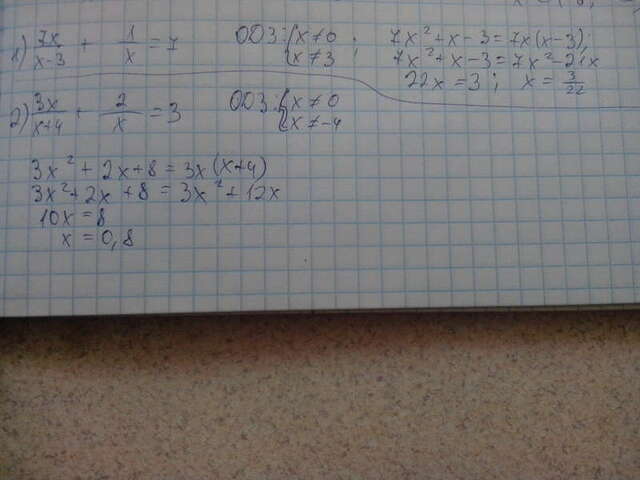 1) 7x/(x-3) + 1/x = 7   ОДЗ: {x≠0; x≠3;
7x² + x - 3 = 7x(x-3);
7x² + x - 3 = 7x² - 21x
22x = 3; x = 3/22
2) 3x/(x+4) + 2/x = 3   ОДЗ: {x≠0; x≠-4
3x² + 2x + 8 = 3x(x+4)
3x² + 2x + 8 = 3x² + 12x
10x = 8
x = 0,8